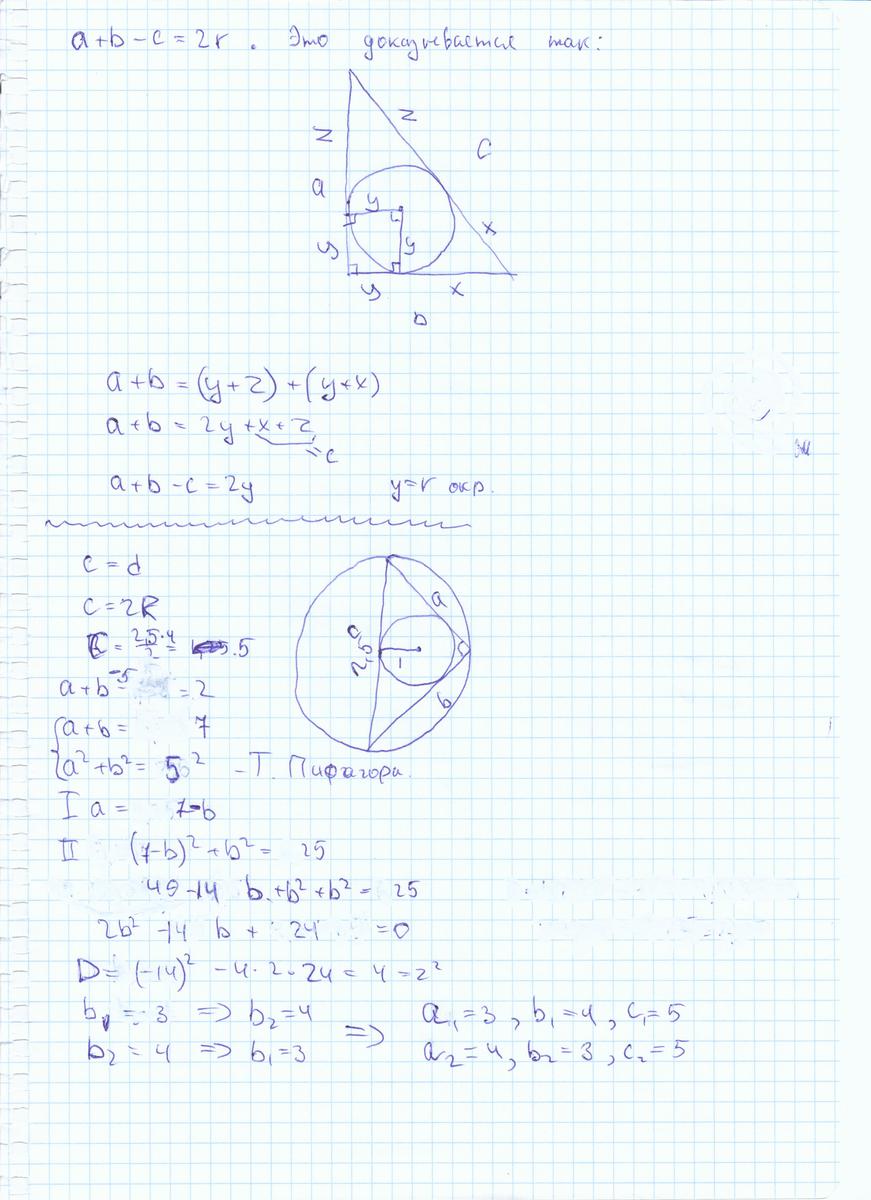 a+b-c=2r. Это доказывается так:
z
z
c
a
y
x
y
y
y
x
b
a+b=(y+z)+(y+x)
a+b=2y+x+z
=c
a+b-c=2y y=r окр.
c=d
c=2R
=5
a+b-5=2
a+b=7
a²+b²=5² -Т. Пифагора.
I a=7-b
II (7-b)²+b²=25
49-14b+b²+b²=25
2b²-14b+24=0
D=(-14)²-4·2·24=4=2²
b₁=3 => b₂=4 => a₁=3, b₁=4, c₁=5
b₂=4 => b₁=3 a₂=4, b₂=3, c₂=5
a
c
2,5
1
b